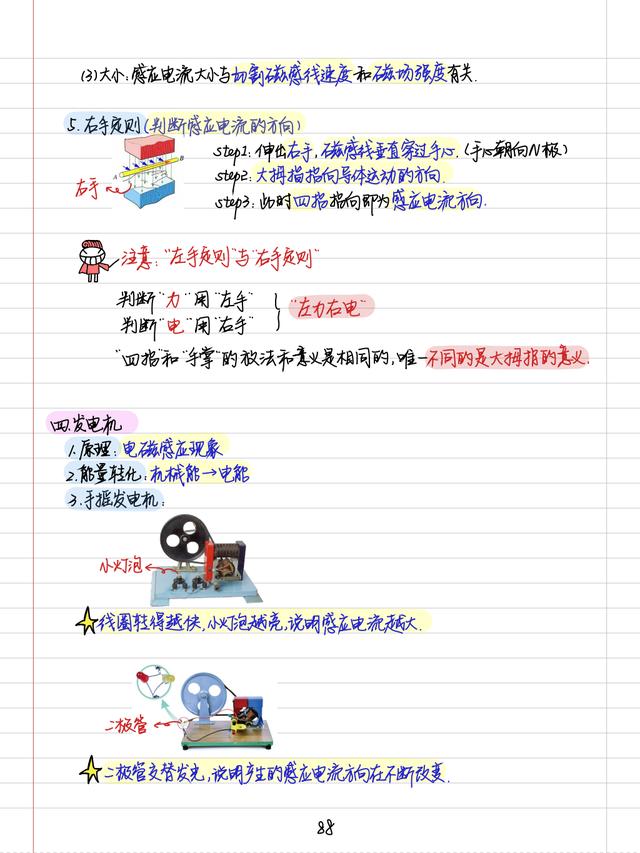 (3)大小:感应电流大小与切割磁感线速度和磁场强度有关.
5.右手定则(判断感应电流的方向)
step1:伸出右手,磁感线垂直穿过手心.(手心朝向N极)
step2:大拇指指向导体运动的方向.
step3:此时四指指向即为感应电流方向.
右手
A
B
注意:"左手定则"与"右手定则"
判断"力"用"左手"
判断"电"用"右手"
"左力右电"
"四指"和"手掌"的放法和意义是相同的,唯一不同的是大拇指的意义.
四.发电机
1.原理:电磁感应现象
2.能量转化:机械能→电能
3.手摇发电机:
小灯泡
线圈转得越快,小灯泡越亮,说明感应电流越大.
二极管
二极管交替发光,说明产生的感应电流方向在不断改变.
88